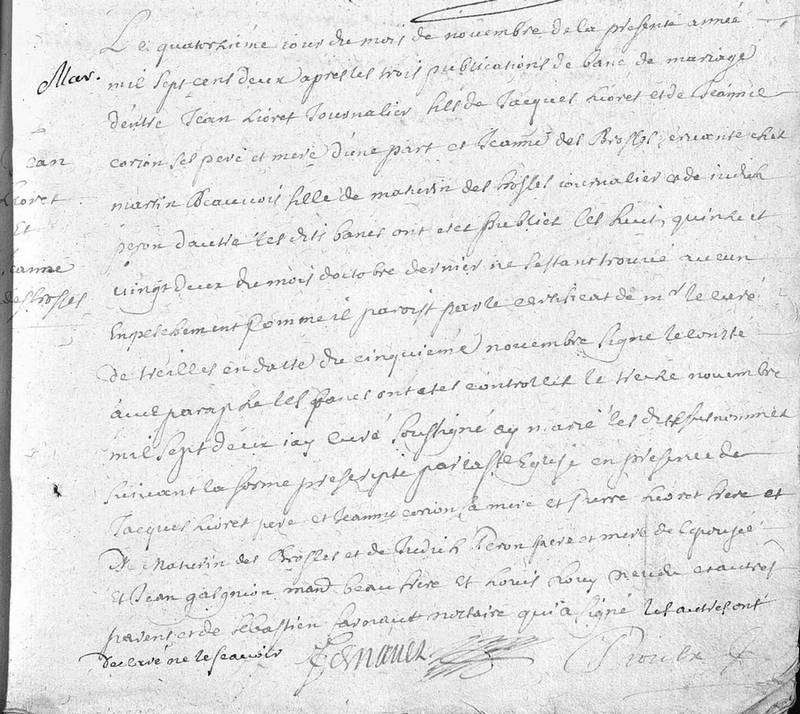 Le quatorhiéme iour du mois de novembre de la presente année
Mar.
mil sept cens deux apres les trois publications de banc de mariage
d'entre Jean Lioret Journalier fils de Jacques Lioret et de Jeanne
corion ses pere et mere d'une part et Jeanne des Brosses servante chez
martin Beauvois fille de maturin des brosses iournalier et de iudich
peron d'autre les dits bancs ont etet publiet les huit, quinze et
vingt deux du mois doctobre dernier ne sestant trouvé aucun
Enpeschement comme il paroist par le certificat de mr. le curé
de treilles en datte du cinquieme novembre signe
avec paraphe les bancs ont etes controllet le treize novembre
mil sept deux iay curé soussigné ay marié les dits susnommet
suivant la forme prescripte par la ste Eglise en presence de
Jacques Lioret pere et Jeanne corion sa mere et pierre Lioret frere et
De Maturin des Brosses et de Judich Peron pere et mere de Lepousée
Et Jean gasgnion beau frere et Louis neveu et autres
parens et de sebastien notaire qui a signé les autres ont
declaré ne le scavoir
ean
Lioret
et
Jeanne
des brosses